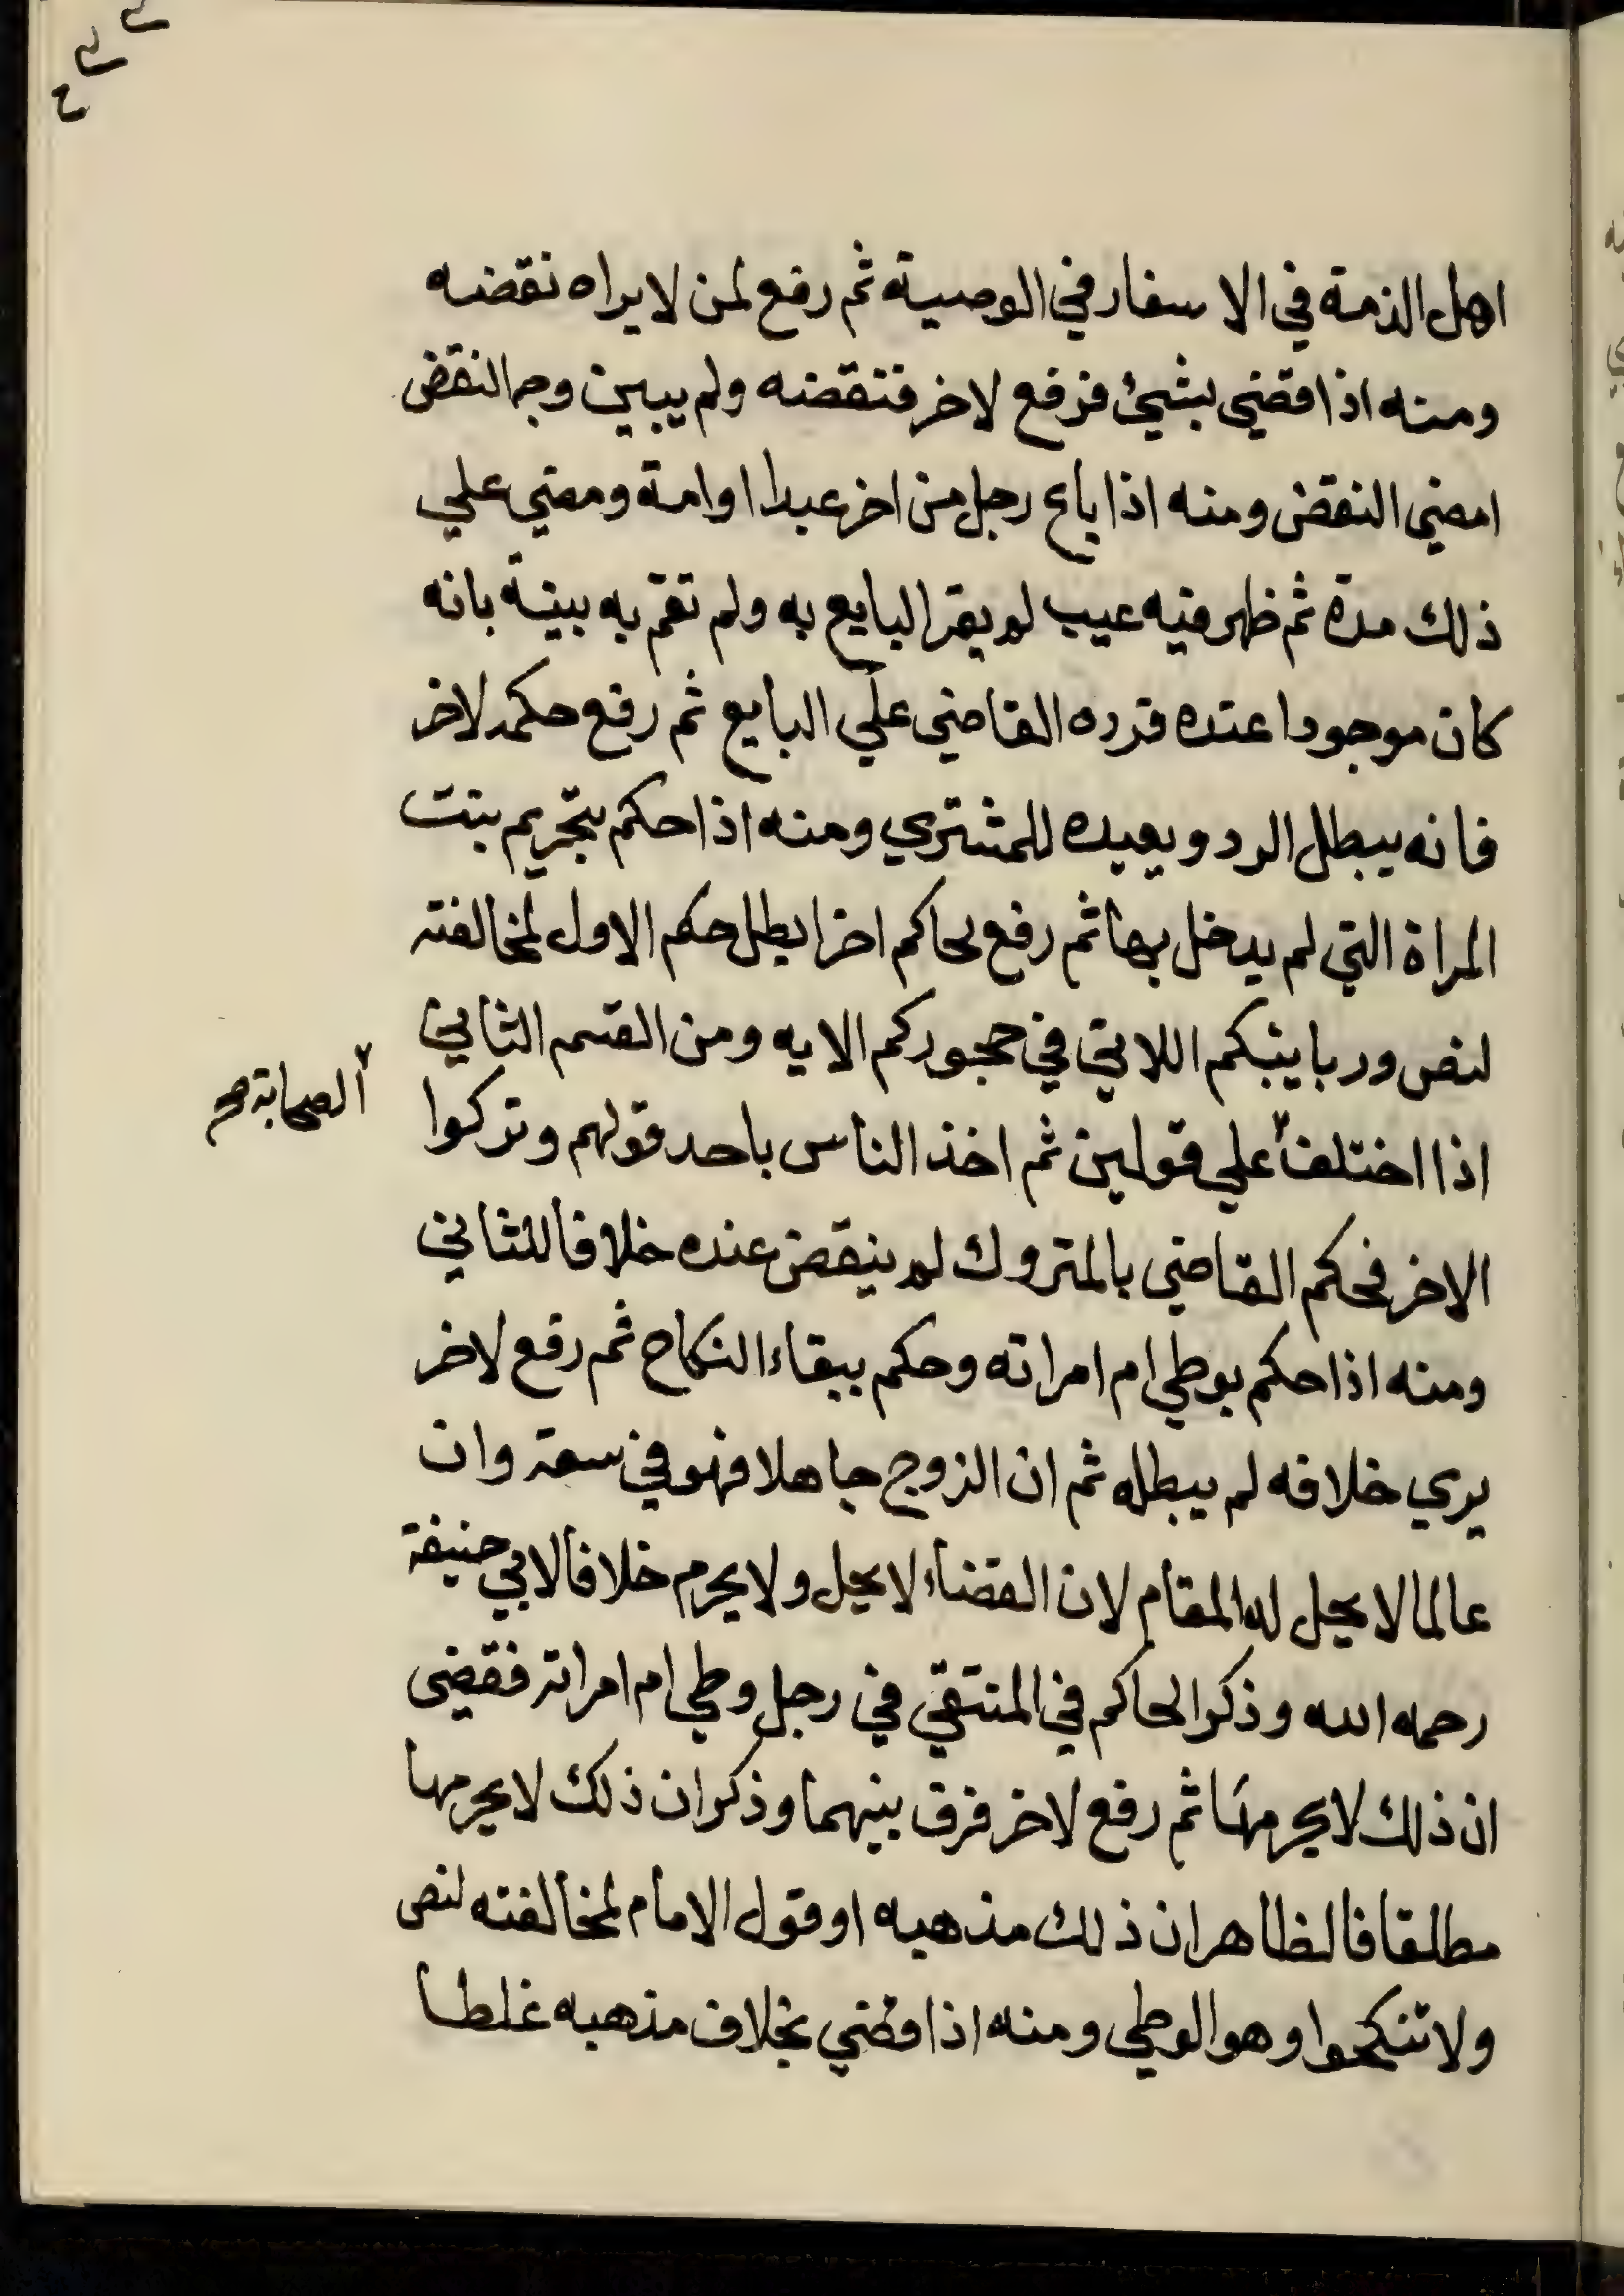 اهل الذمة في الاسفار في الوصية ثم رفع لمن لا يراه نقضه
ومنه اذا قضي بشيئ فرفع لاخر فنقضه ولم يبين وجه النقض
امضي النقض ومنه اذا باع رجل من اخر عبدا او امة ومضي علي
ذلك مدة ثم ظهر فيه عيب لم يقر البايع به ولم تقم به بينة بانه
كان موجودا عنده فرده القاضي علي البايع ثم رفع حكمه لاخر
فانه يبطل الرد ويعيده للمشتري ومنه اذا حكم بتحريم بنت
المراة التي لم يدخل بها ثم رفع لحاكم اخر ابطل حكم الاول لمخالفته
لنص وربايبكم اللاتي في حجوركم الايه ومن القسم الثاني
الصحابة صح
اذا اختلف علي قولين ثم اخذ الناس باحد قولهم وتركوا
الاخر فحكم القاضي بالمتروك لم ينقض عنده خلافا للثاني
ومنه اذا حكم بوطي ام امراته وحكم ببقاء النكاح ثم رفع لاخر
يري خلافه لم يبطله ثم ان الزوج جاهلا فهو في سعة وان
عالما لا يحل له المقام لان القضاء لا يحل ولا يحرم خلافا لابي حنيفة
رحمه الله وذكر الحاكم في المنتقي في رجل وطي ام امراته فقضي
ان ذلك لا يحرمها ثم رفع لاخر فرق بينهما وذكر ان ذلك لا يحرمها
مطلقا فالظاهر ان ذلك مذهبه او قول الامام لمخالفته لنص
ولا تنكحوا وهو الوطي ومنه اذا قضي بخلاف مذهبه غلطا